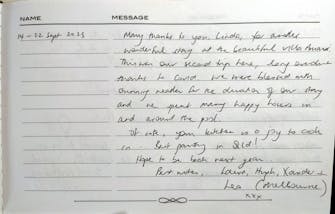 NAME MESSAGE
14-22 Sept 2023 Many thanks to you, Linda, for another
wonderful stay at the beautiful Villa
This was our second trip here, long overdue
thanks to Covid. We were blessed with
stunning weather for the duration of our stay
and we spent many happy hours in
and around the pool.
Of note, your kitchen is a joy to cook
in. Best pantry in
Hope to be back next year.
Best wishes, Laura, Hugh, Xander +
Leo (Melbourne)
xxx